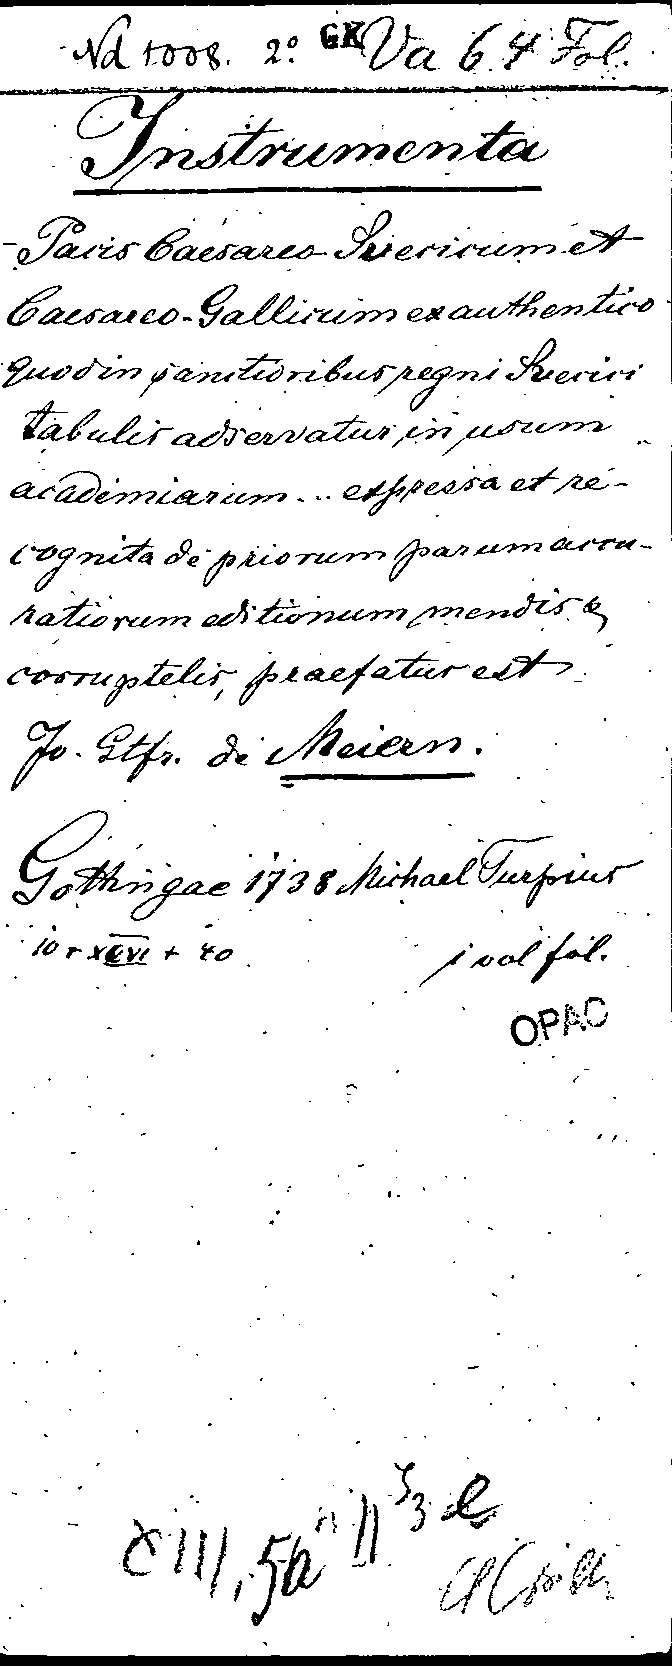 Nd 1008. 2° GK Va 64 Fol.
Instrumenta
Pacis Caesareo Suecicum et
Caesareo-Gallicum ex authentico
quod in sanctioribus regni Suecici
tabulis adservatur in usum
academiarum... expressa et re-
cognita de priorum parum accu-
ratiorum editionum mendis &
corruptelis, praefatus est
Jo. Gtfr. de Meiern.
Gottingae 1738 Michael Turpius
1 vol fol.
OPAC